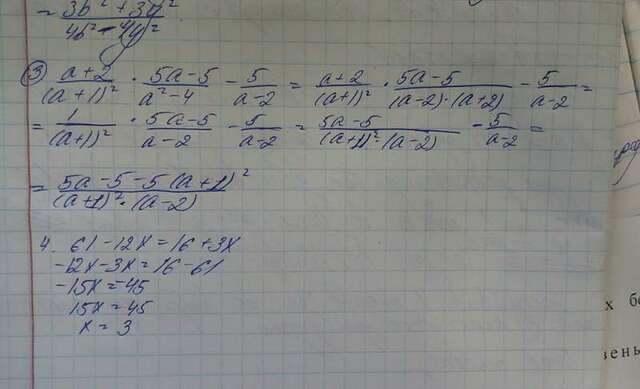 = 3b² + 3y² / 4b² - 4y²
③ a+2 / (a+1)² · 5a-5 / a²-4 - 5 / a-2 = a+2 / (a+1)² · 5a-5 / (a-2)·(a+2) - 5 / a-2 =
= 1 / (a+1)² · 5a-5 / a-2 - 5 / a-2 = 5a-5 / (a+1)²·(a-2) - 5 / a-2 =
= 5a-5-5(a+1)² / (a+1)²·(a-2)
4. 61-12x=16+3x
-12x-3x=16-61
-15x=-45
15x=45
x=3
х бо